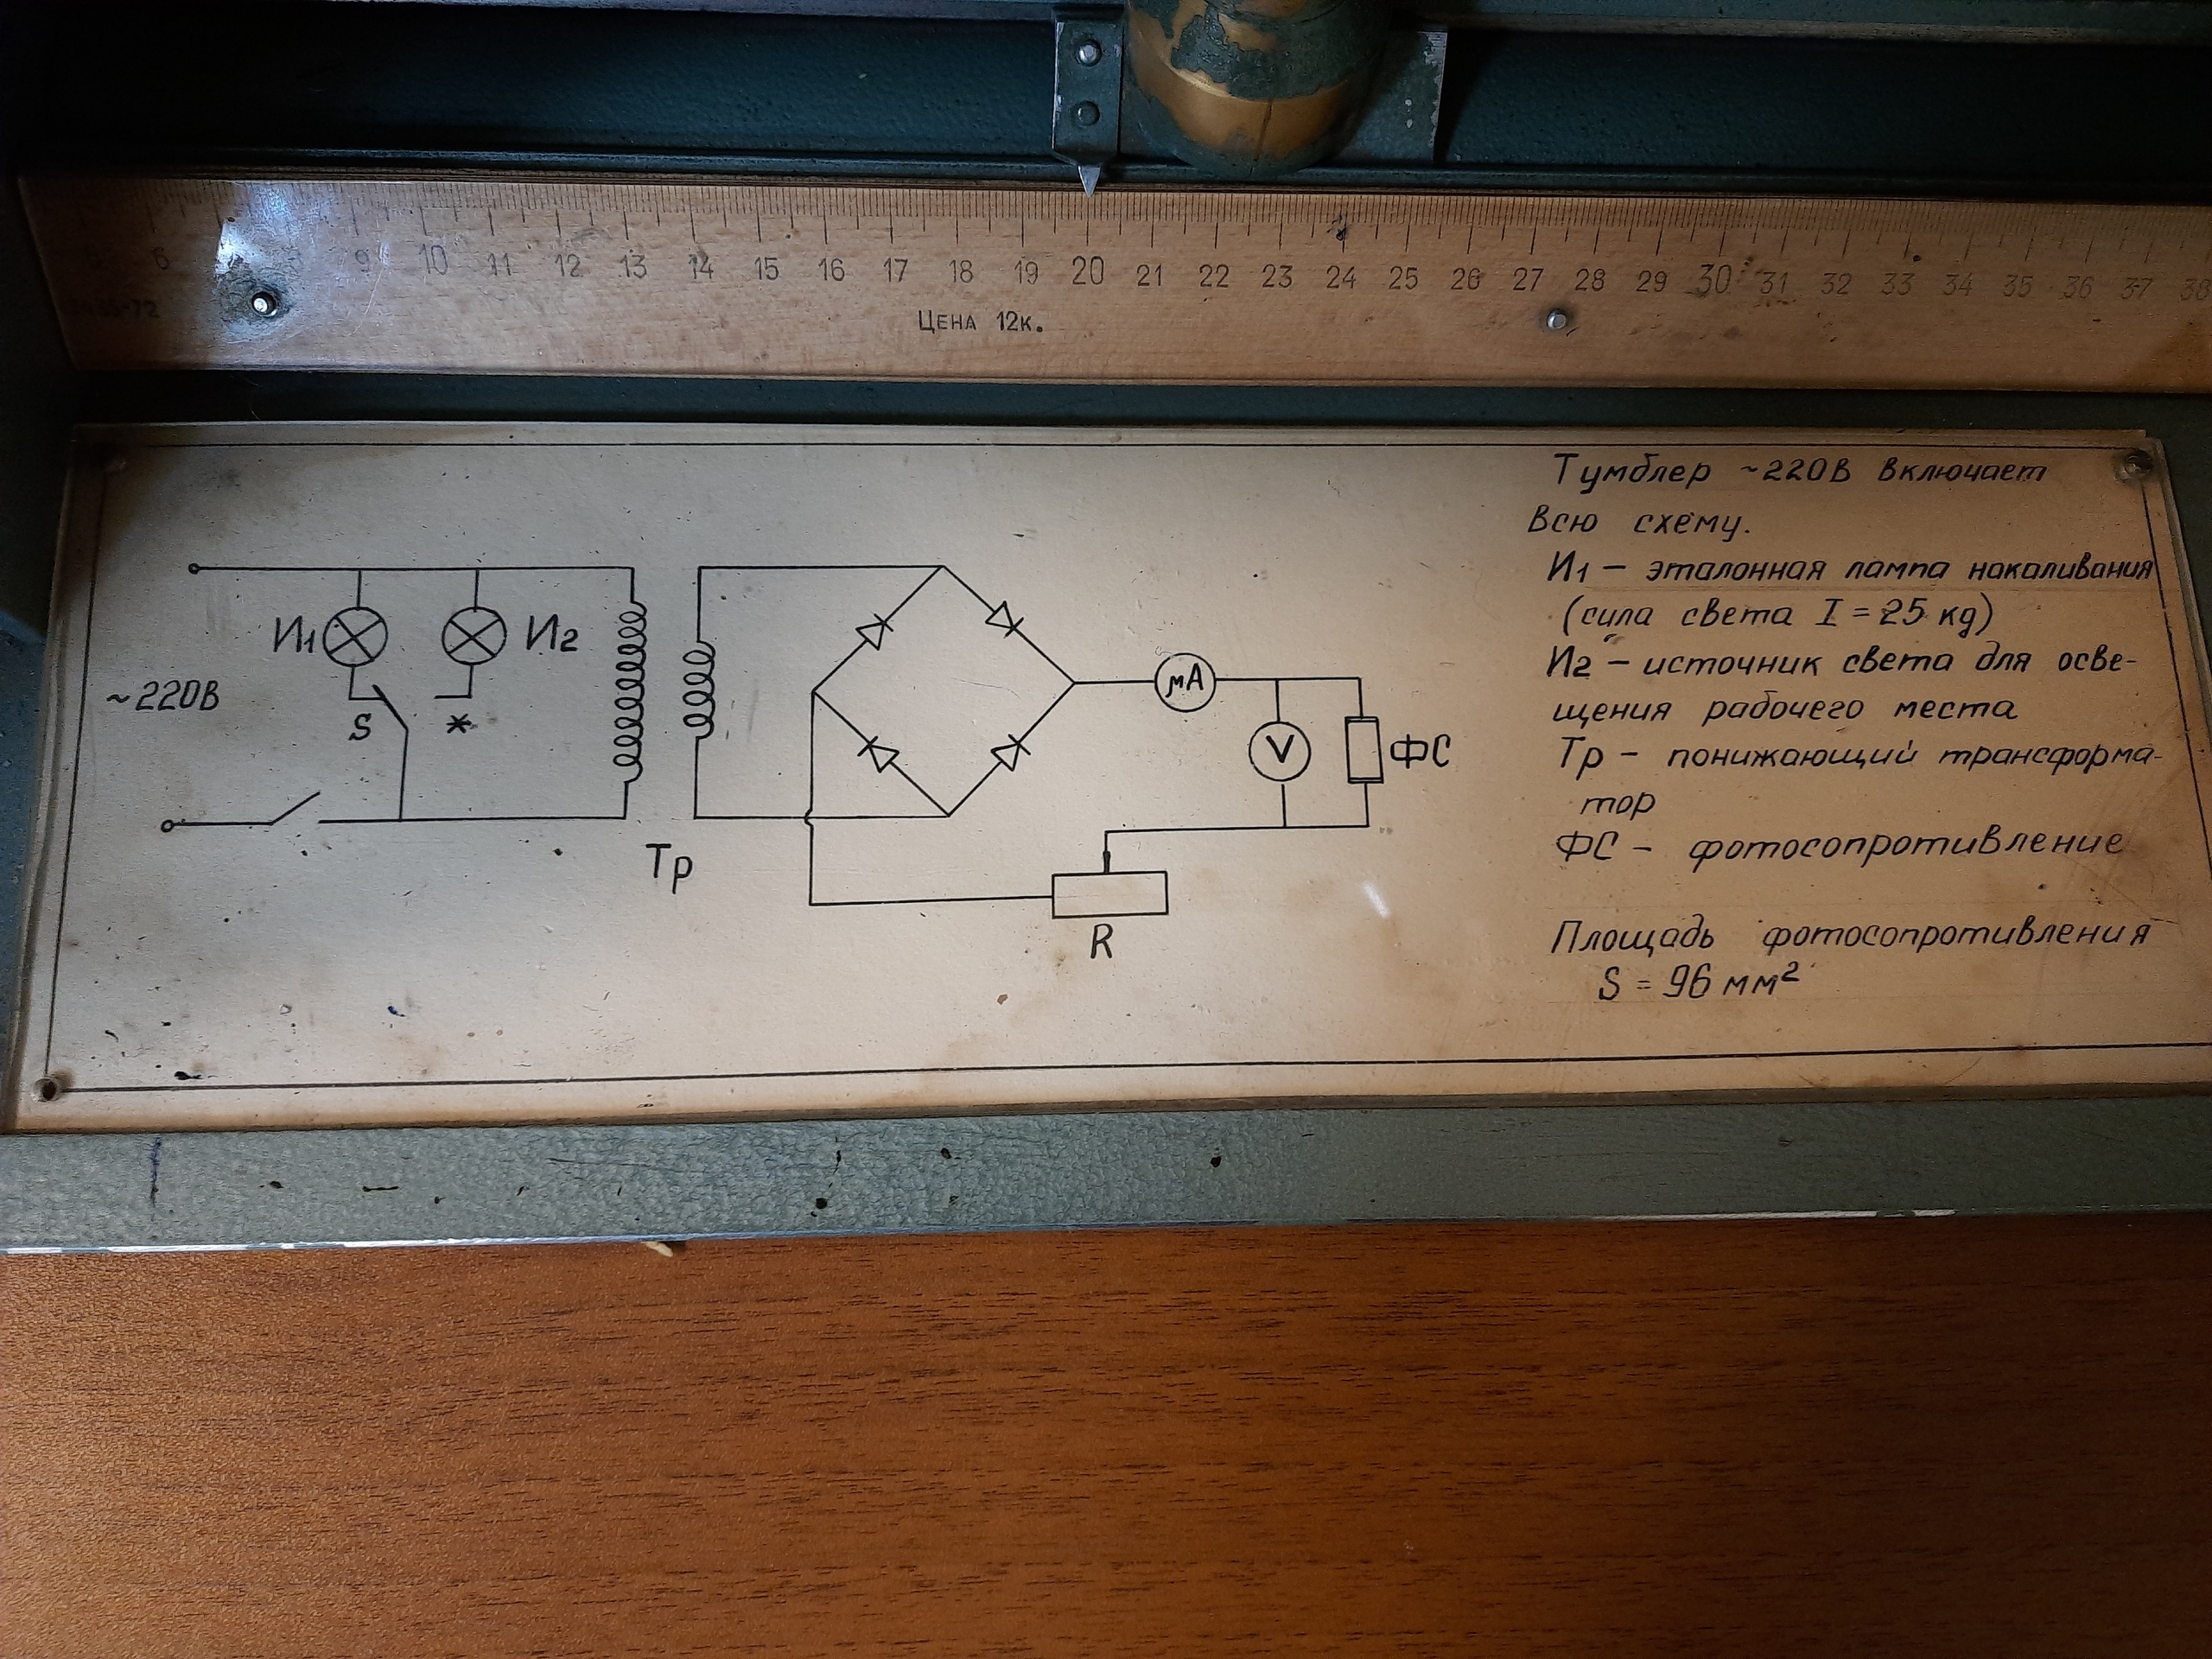 6 9 10 11 12 13 14 15 16 17 18 19 20 21 22 23 24 25 26 27 28 29 30 31 32 33 34 35 36 37 38
Цена 12к.
Тумблер ~220В включает
всю схему.
И1 – эталонная лампа накаливания
(сила света I = 25 кд)
И2 – источник света для осве-
щения рабочего места
Тр – понижающий трансформа-
тор
ФС – фотосопротивление
Площадь фотосопротивления
S = 96 мм²
И1
И2
~220В
S
*
Тр
μA
V
ФС
R